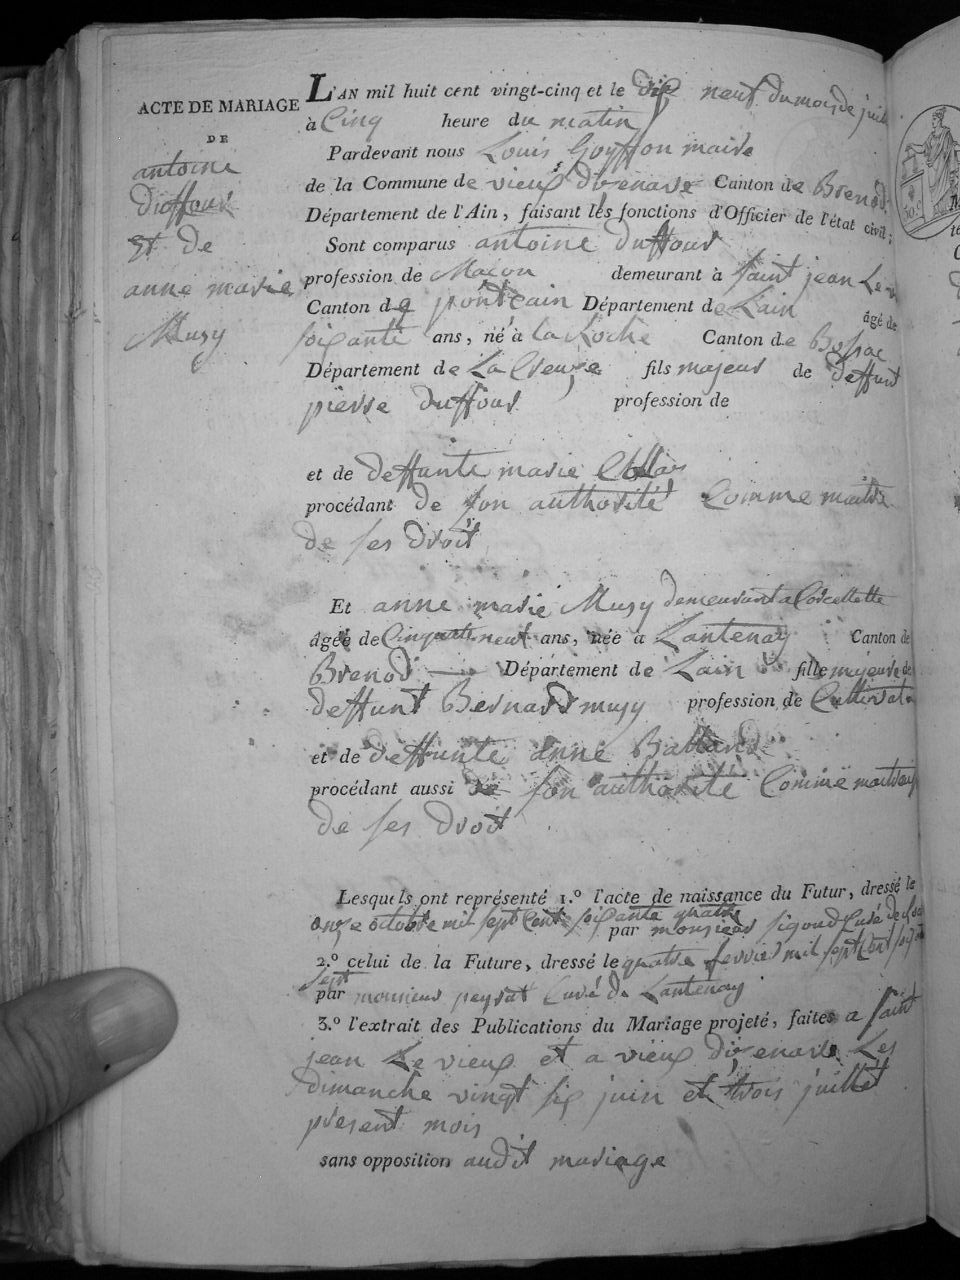 ACTE DE MARIAGE
DE
antoine
Duffour
Et de
anne marie
Musy
L'AN mil huit cent vingt-cinq et le dix neuf du mois de juil
à Cinq heure du matin
Pardevant nous Louis Goyffon maire
de la Commune de vieux d'izenave Canton de Brenod
Département de l'Ain, faisant les fonctions d'Officier de l'état civil;
Sont comparus antoine duffour
profession de Maçon demeurant à saint jean Le v
Canton de pontdain Département de L'ain âgé de
soixante ans, né à la Roche Canton de
Département de La Creuze fils majeur de deffunt
pierre duffour profession de
et de deffunte marie
procédant de son authorité Comme maitre
de ses droit
Et anne marie Musy demeurant a Corcellette
âgée de Cinquante neuf ans, née à Lantenay Canton de
Brenod Département de Lain fille majeure de
deffunt Bernard musy profession de Cultivate
et de deffunte anne Balland
procédant aussi de son authorité Comme maitraisse
de ses droit
Lesquels ont représenté 1.º l'acte de naissance du Futur, dressé le
onze octobre mil sept Cent soixante quatre
par monsieur sigoud Curé de
2.º celui de la Future, dressé le quatre fevrier mil sept Cent soixante
sept
par monsieur peyrat Curé de Lantenay
3.º l'extrait des Publications du Mariage projeté, faites a saint
jean Le vieux et a vieux d'izenave Les
dimanche vingt six juin et trois juillet
present mois
sans opposition audit mariage